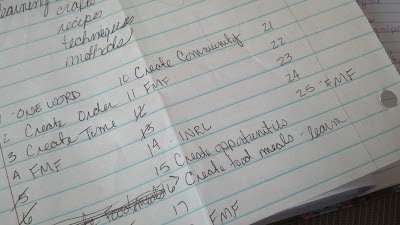 learning crafts
recipes
techniques
methods)
ONE WORD
2 Create Order
3 Create Time
4 FMF
5
6
10 Create Community
11 FMF
12
13
14 - INRL
15 Create opportunities
16 Create food meals - learn
17
FMF
21
22
23
24
25 - FMF